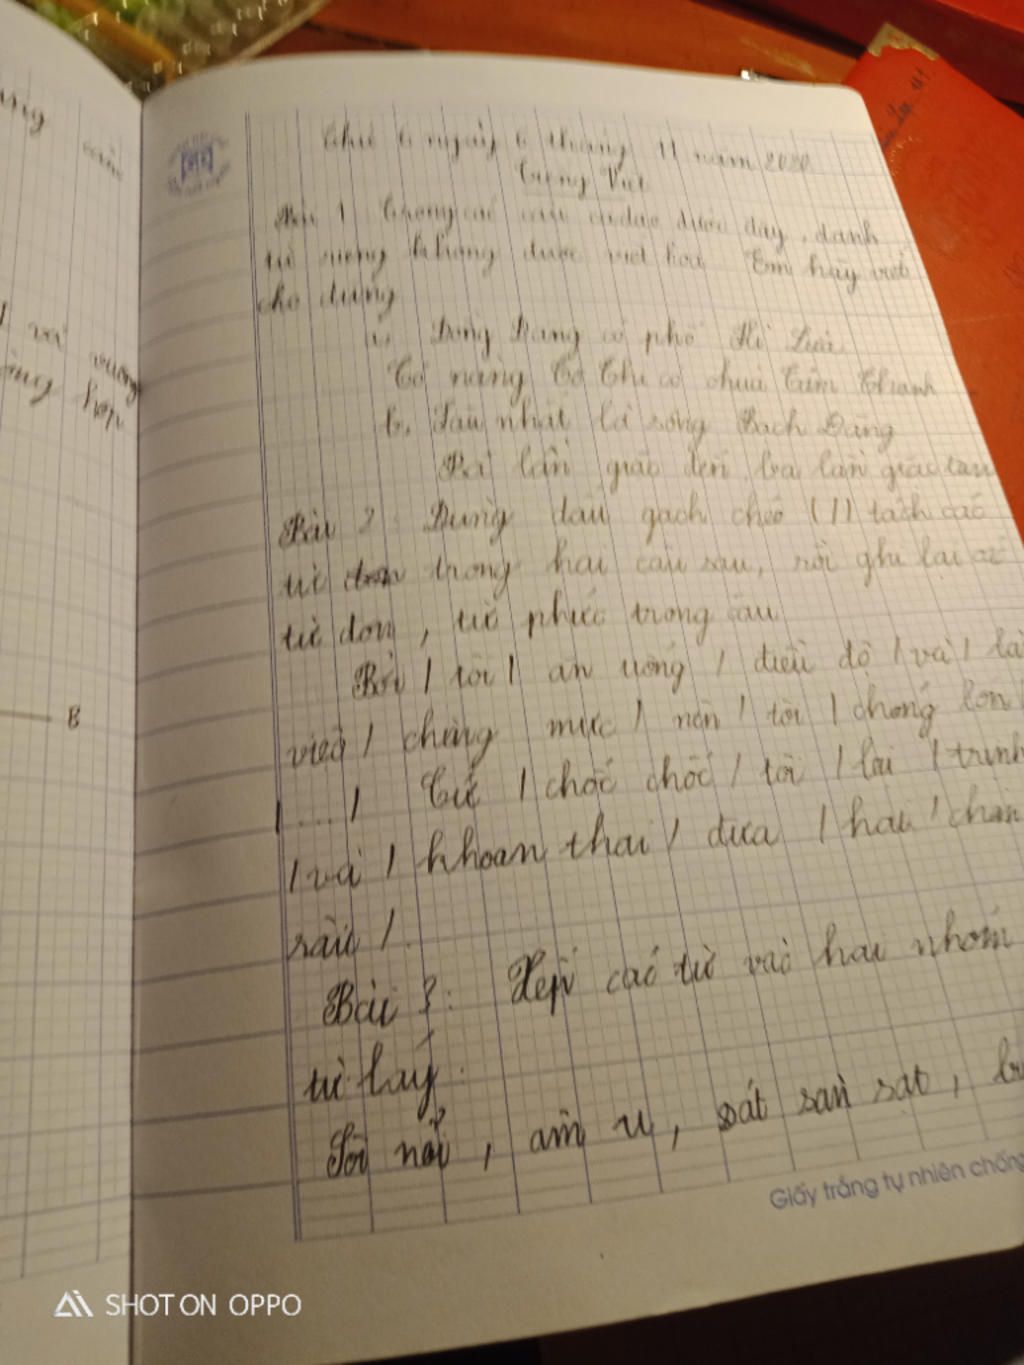 Thứ 6 ngày 6 tháng 11 năm 2020
Tiếng Việt
Bài 1 Trong các câu ca dao dưới đây, danh
từ riêng không được viết hoa Em hãy viết
cho đúng
a, Đồng Đăng có phố Kì Lừa
Có nàng Tô Thị có chùa Tam Thanh
b, Sâu nhất là sông Bạch Đằng
Ba lần giặc đến ba lần giặc tan
Bài 2: Dùng dấu gạch chéo (/) tách các
từ trong hai câu sau, rồi ghi lại các
từ đơn, từ phức trong câu
Bởi / tôi / ăn uống / điều độ / và / là
việc / chừng mực / nên / tôi / chóng lớn /
/ ... / Cứ / chốc chốc / tôi / lại / trịnh
/ và / khoan thai / đưa / hai / chân
râu /.
Bài 3: Xếp các từ vào hai nhóm
từ láy.
Sôi nổi, ầm ù, sát sàn sạt,
Giấy trắng tự nhiên chống
ung
căn
và vuông
hợp
B
SHOT ON OPPO